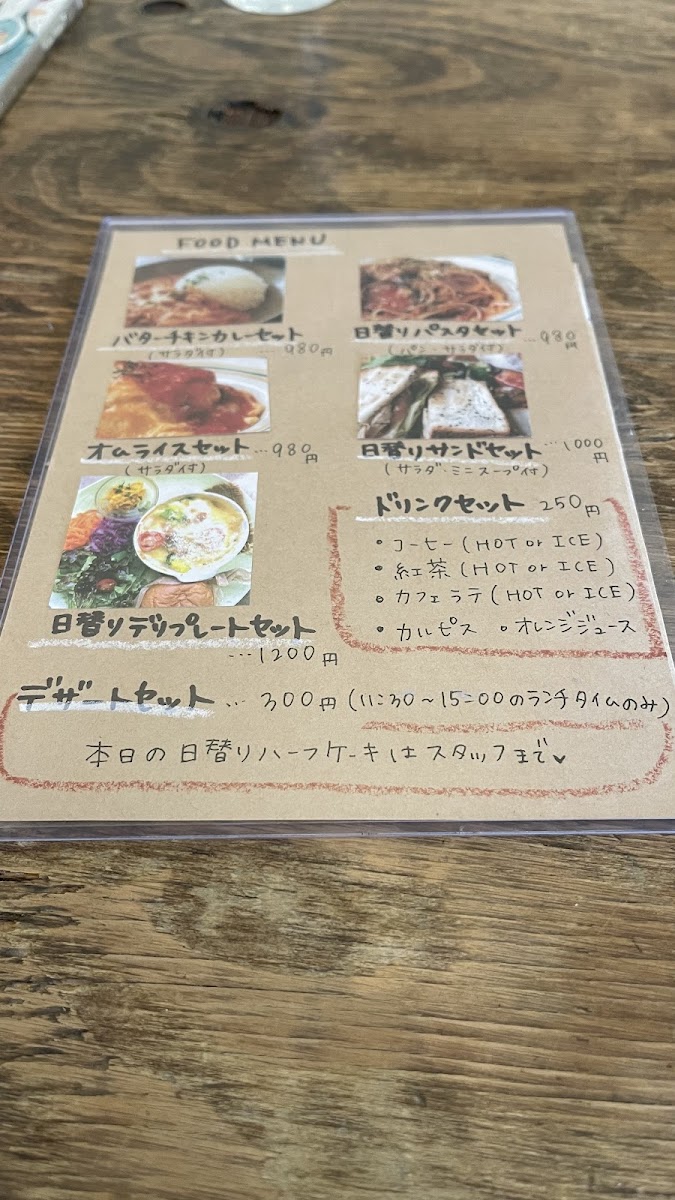 FOOD MENU
バターチキンカレーセット
(サラダ付) ... 980円
日替りパスタセット ... 980円
(パン・サラダ付)
オムライスセット ... 980円
(サラダ付)
日替りサンドセット ... 1000円
(サラダ・ミニスープ付)
日替りデリプレートセット
... 1200円
ドリンクセット 250円
• コーヒー (HOT or ICE)
• 紅茶 (HOT or ICE)
• カフェラテ (HOT or ICE)
• カルピス • オレンジジュース
デザートセット ... 300円 (11:30～15:00のランチタイムのみ)
本日の日替りハーフケーキはスタッフまで♥